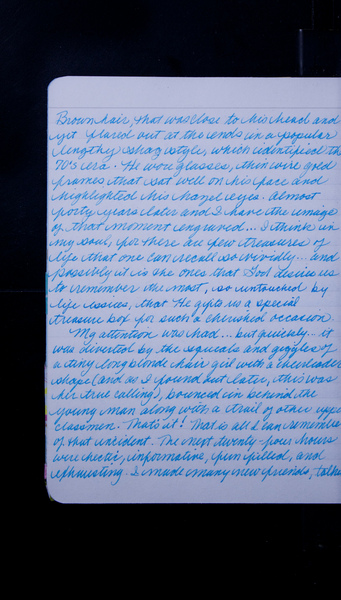 Brown hair, that was close to his head and
yet flared out at the ends in a popular
lengthy shag style, which identified the
70's era. He wore glasses, thin wire gold
frames that sat well on his face and
highlighted his hazel eyes. Almost
forty years later and I have the image
of that moment engraved... I think in
my soul, for there are few treasures of
life that one can recall so vividly... and
possibly it is the ones that God desires us
to remember the most, so untouched by
life issues, that He gifts us a special
treasure box for such a cherished occasion.
My attention was had... but quickly - it
was diverted by the squeals and giggles of
a tiny long blonde hair girl with a cheerleader
shape (and as I found out later, this was
her true calling), bounced in behind the
young man along with a trail of other upper
classmen. That's it! That is all I can remember
of that incident. The next twenty-four hours
were hectic, informative, fun filled, and
exhausting. I made many new friends,